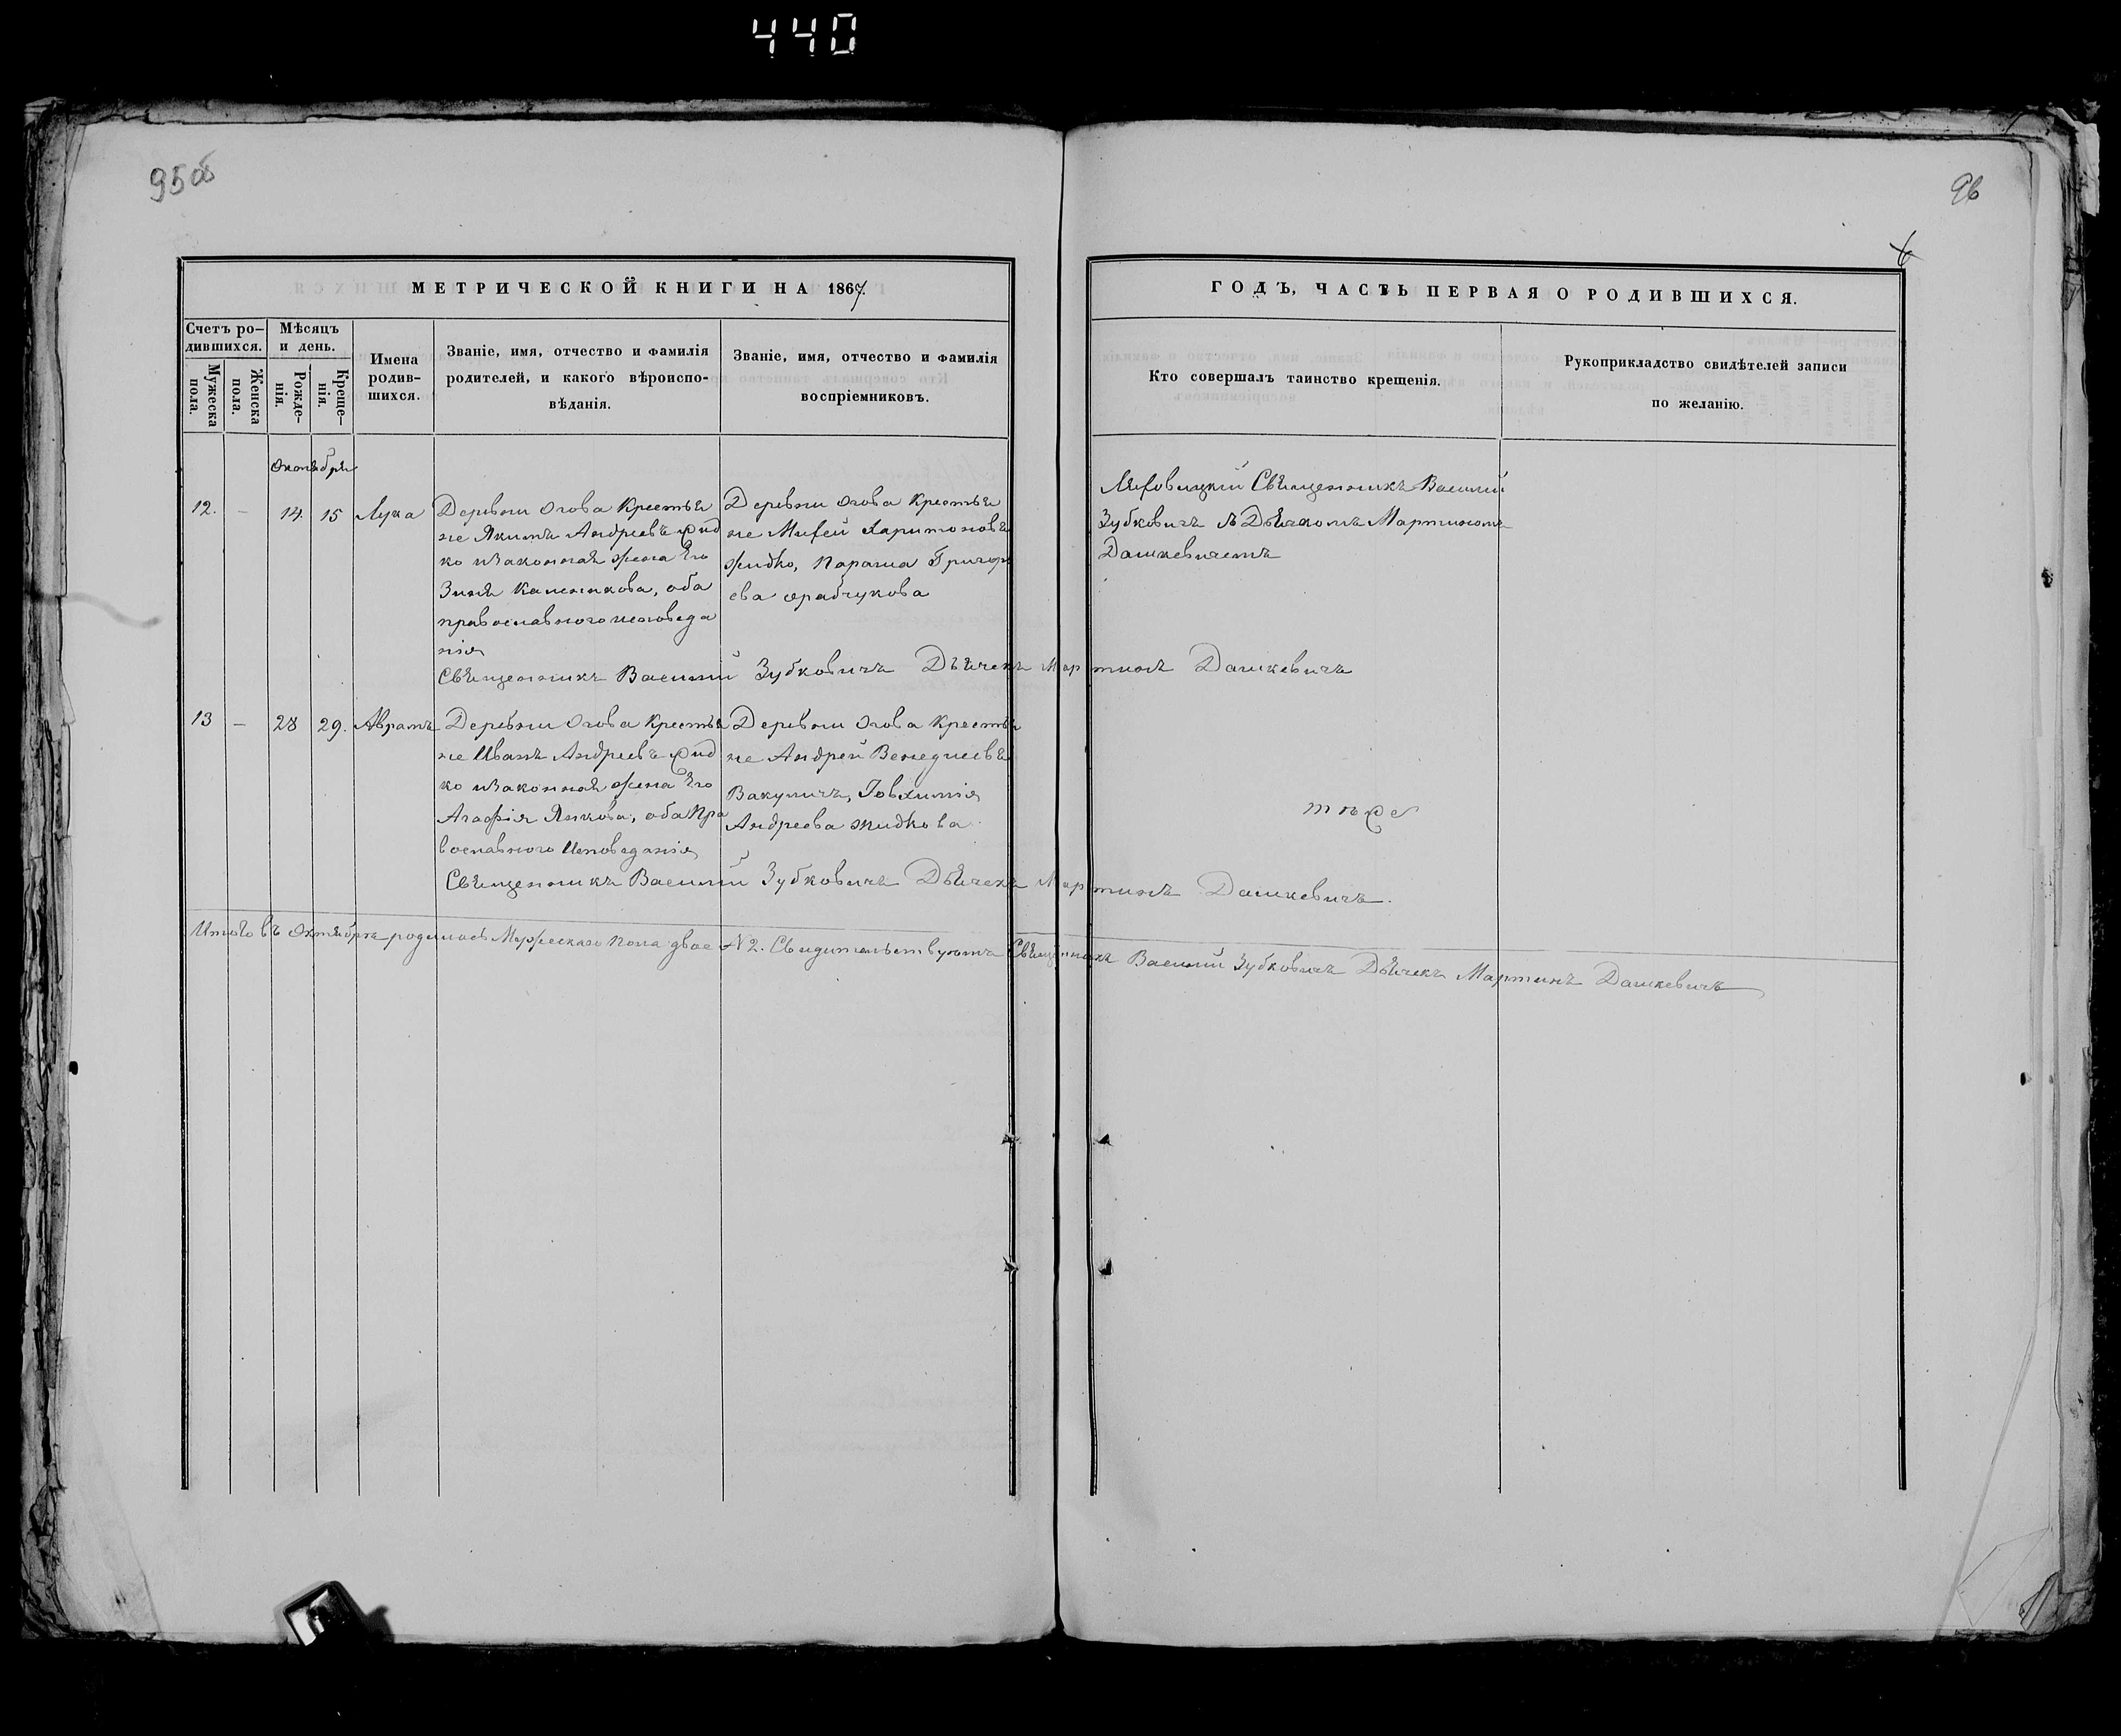 440
95об
96
6
МЕТРИЧЕСКОЙ КНИГИ НА 1867
ГОДЪ, ЧАСТЬ ПЕРВАЯ О РОДИВШИХСЯ.
Счетъ ро-
дившихся.
Мужеска
пола.
Женска
пола.
Мѣсяцъ
и день.
Рожде-
нія.
Креще-
нія.
Имена
родив-
шихся.
Званіе, имя, отчество и фамилія
родителей, и какого вѣроиспо-
вѣданія.
Званіе, имя, отчество и фамилія
воспріемниковъ.
Кто совершалъ таинство крещенія.
Рукоприкладство свидѣтелей записи
по желанію.
Октября
12. - 14. 15 Лука
Деревни Огова Крестья
не Якимъ Андреевъ Жид
ко изаконная жена Его
Зиня, оба
православного исповеда
нія
Деревни Огова Крестья
не Михей Харитоновъ
Жидко, Параша Григор
ева
Священникъ Василій
Зубковичъ Дьячкомъ Мартиномъ
Дашкевичемъ
Священникъ Василий Зубковичъ Дьячекъ Мартинъ Дашкевичъ
13 - 28 29. Аврамъ
Деревни Огова Крестья
не Иванъ Андреевъ Жид
ко изаконная жена Его
Агафія Янкова, оба Пра
вославного Исповеданія
Деревни Огова Крестья
не Андрей
Вакуличъ, Іовхимія
Андреева Жидкова
тоже
Священникъ Василий Зубковичъ Дьячекъ Мартинъ Дашкевичъ.
Итого въ Октябре родилось Мужескаго пола двое N 2. Свидительствуютъ Священникъ Василий Зубковичъ Дьячекъ Мартинъ Дашкевичъ